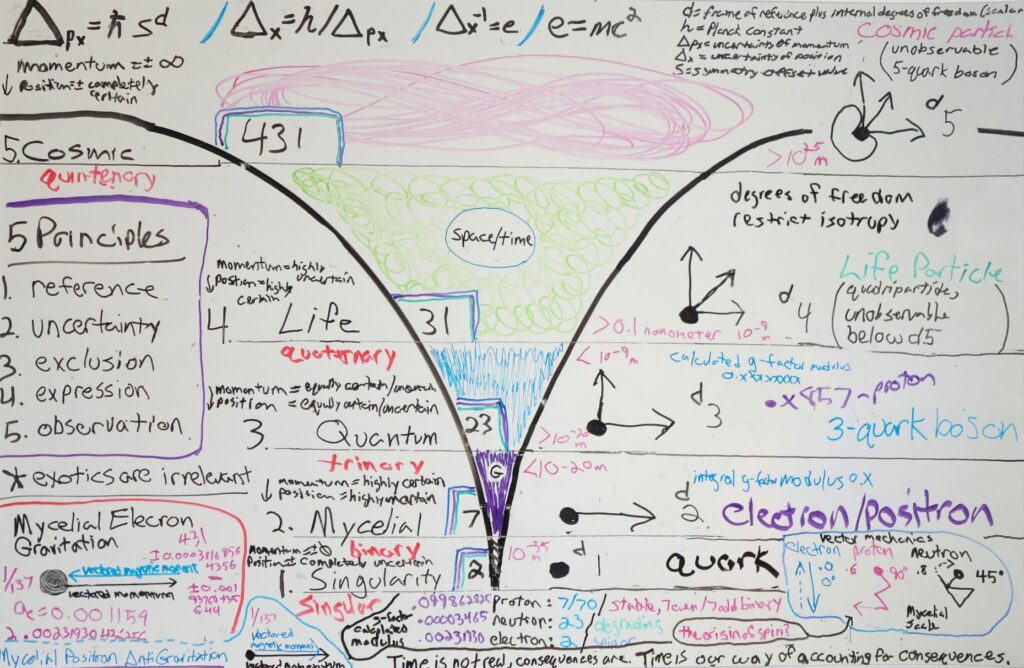 Δpx = ħ s^d / Δx = ħ/Δpx / Δx^-1 = e / e = mc²
d = frame of reference plus internal degrees of freedom (scalar
ħ = Planck constant
Δpx = uncertainty of momentum
Δx = uncertainty of position
S = symmetry offset value
momentum = ± ∞
↓ position = ± completely certain
Cosmic particle
(unobservable
5-quark boson)
431
d5
5. Cosmic
>10^25 m
quintenary
5 Principles
1. reference
2. uncertainty
3. exclusion
4. expression
5. observation
* exotics are irrelevant
space/time
degrees of freedom
restrict isotropy
momentum = highly uncertain
↓ position = highly certain
4. Life
31
d4
Life Particle
(quadripartide,
unobservable
below d5
>0.1 nanometer 10^-9 m
quaternary
<10^-9 m
calculated g-factor modulus
0.xxxxxxxx
momentum = equally certain/uncertain
↓ position = equally certain/uncertain
3. Quantum
23
d3
•x857-proton
3-quark boson
>10^-20 m
trinary
G
<10-20m
momentum = highly certain
↓ position = highly uncertain
2. Mycelial
7
d2
integral g-factor modulus 0.x
electron/positron
binary
momentum = ± 0
Position = ± completely uncertain
1. Singularity
2
10^-35 m
d1
quark
Singular
Mycelial Elecron
Gravitation
431
1/137
vectored magnetic moment
vectored momentum
±0.001
ae = 0.001159
Mycelial Positron AntiGravitation
1/137
vectored
magnetic moment
vectored momentum
g-factor
calculated
modulus
.00003465
.00231930
proton: 7/70
neutron: 23
electron: 2
stable, 7 even/7 odd binary
degrading
spinor
the origin of spin?
Vector mechanics
electron
proton
neutron
.6
90°
.8
45°
Mycelial
Scale
Time is not real, consequences are. Time is our way of accounting for consequences.